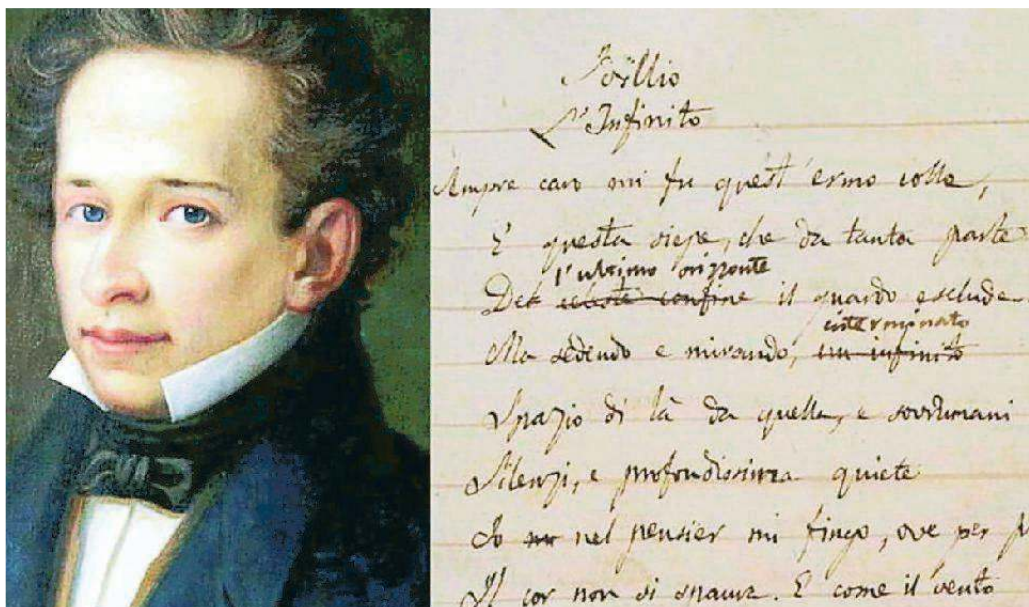 Idillio
L'Infinito
Sempre caro mi fu quest'ermo colle,
E questa siepe, che da tanta parte
l'ultimo orizzonte
Del celeste confine il guardo esclude
interminato
Ma sedendo e mirando, un infinito
Spazio di là da quella, e sovrumani
Silenzi, e profondissima quiete
Io nel pensier mi fingo, ove per
Il cor non si spaura. E come il vento